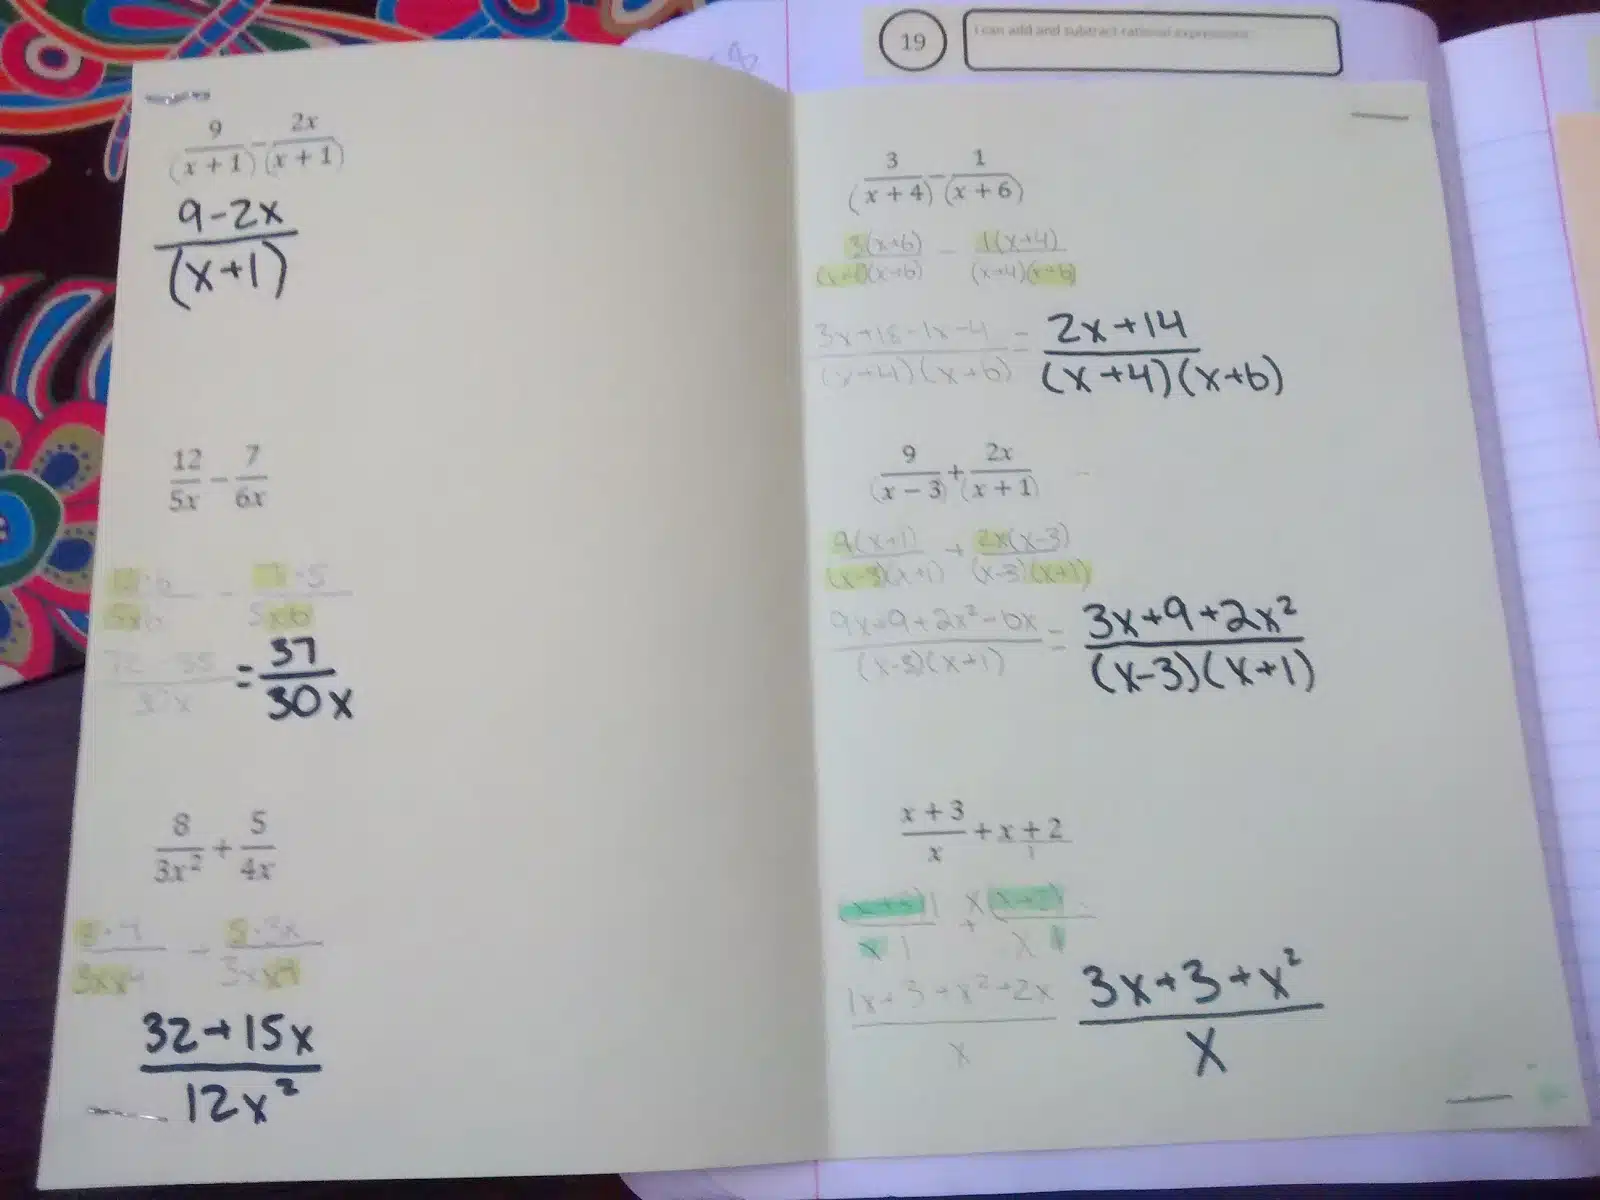 19
I can add and subtract rational expressions
9/(x + 1) − 2x/(x + 1)
9-2x
(x+1)
12/5x − 7/6x
12·6/5x6 - 7·5/5x6
72-35/30x = 37/30x
8/3x² + 5/4x
8·4/3xx4 + 5·3x/3xx4
32+15x
12x²
3/(x + 4) − 1/(x + 6)
3(x+6)/(x+4)(x+6) - 1(x+4)/(x+4)(x+6)
3x+18-1x-4/(x+4)(x+6) = 2x+14/(x+4)(x+6)
9/(x − 3) + 2x/(x + 1)
9(x+1)/(x-3)(x+1) + 2x(x-3)/(x-3)(x+1)
9x+9+2x²-6x/(x-3)(x+1) = 3x+9+2x²/(x-3)(x+1)
x + 3/x + x + 2/1
(x+3)1/x 1 + x(x+2)/x 1
1x+3+x²+2x/x 3x+3+x²/x